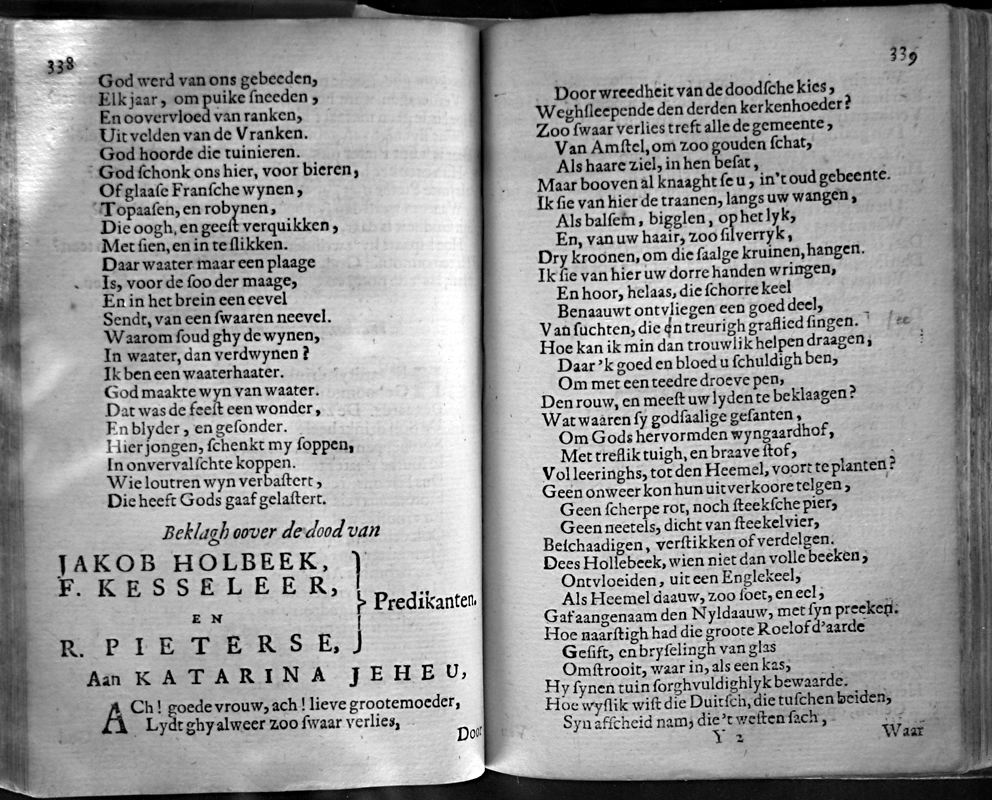 338
God werd van ons gebeeden,
Elk jaar, om puike ſneeden,
En oovervloed van ranken,
Uit velden van de Vranken.
God hoorde die tuinieren.
God ſchonk ons hier, voor bieren,
Of glaaſe Franſche wynen,
Topaaſen, en robynen,
Die oogh, en geeſt verquikken,
Met ſien, en in te ſlikken.
Daar waater maar een plaage
Is, voor de ſoo der maage,
En in het brein een eevel
Sendt, van een ſwaaren neevel.
Waarom ſoud ghy de wynen,
In waater, dan verdwynen?
Ik ben een waaterhaater.
God maakte wyn van waater.
Dat was de feeſt een wonder,
En blyder, en geſonder.
Hier jongen, ſchenkt my ſoppen,
In onvervalſchte koppen.
Wie loutren wyn verbaſtert,
Die heeft Gods gaaf gelaſtert.
Beklagh oover de dood van
JAKOB HOLBEEK,
F. KESSELEER,
EN
R. PIETERSE,
Predikanten.
Aan KATARINA JEHEU,
ACh! goede vrouw, ach! lieve grootemoeder,
Lydt ghy alweer zoo ſwaar verlies,
Door
339
Door wreedheit van de doodſche kies,
Weghſleepende den derden kerkenhoeder?
Zoo ſwaar verlies treft alle de gemeente,
Van Amſtel, om zoo gouden ſchat,
Als haare ziel, in hen beſat,
Maar booven al knaaght ſe u, in't oud gebeente.
Ik ſie van hier de traanen, langs uw wangen,
Als balſem, bigglen, op het lyk,
En, van uw haair, zoo ſilverryk,
Dry kroonen, om die ſaalge kruinen, hangen.
Ik ſie van hier uw dorre handen wringen,
En hoor, helaas, die ſchorre keel
Benaauwt ontvliegen een goed deel,
Van ſuchten, die en treurigh graflied ſingen.
Hoe kan ik min dan trouwlik helpen draagen,
Daar 'k goed en bloed u ſchuldigh ben,
Om met een teedre droeve pen,
Den rouw, en meeſt uw lyden te beklaagen?
Wat waaren ſy godſaalige geſanten,
Om Gods hervormden wyngaardhof,
Met treflik tuigh, en braave ſtof,
Vol leeringhs, tot den Heemel, voort te planten?
Geen onweer kon hun uitverkoore telgen,
Geen ſcherpe rot, noch ſteekſche pier,
Geen neetels, dicht van ſteekelvier,
Beſchaadigen, verſtikken of verdelgen.
Dees Hollebeek, wien niet dan volle beeken,
Ontvloeiden, uit een Englekeel,
Als Heemel daauw, zoo ſoet, en eel,
Gaf aangenaam den Nyldaauw, met ſyn preeken.
Hoe naarſtigh had die groote Roelof d'aarde
Geſift, en bryſelingh van glas
Omſtrooit, waar in, als een kas,
Hy ſynen tuin ſorghvuldighlyk bewaarde.
Hoe wyſlik wiſt die Duitſch, die tuſchen beiden,
Syn afſcheid nam, die 't weſten ſach,
Y 2
Waar